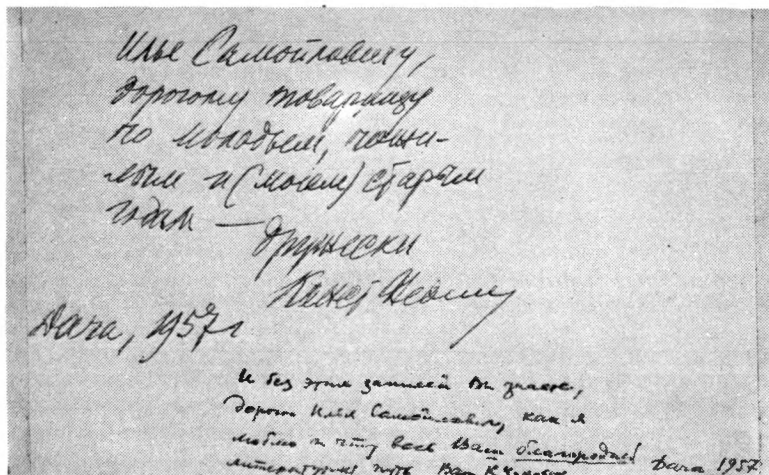 Илье Самойловичу,
дорогому товарищу
по молодым, пожи-
лым и (моем) старым
годам —
дружески
Конст Федин
Дача, 1957 г
И без этих записей Вы знаете,
дорогой Илья Самойлович, как я
люблю и чту весь Ваш благородный
литературный путь Ваш К Чуковский
Дача 1957